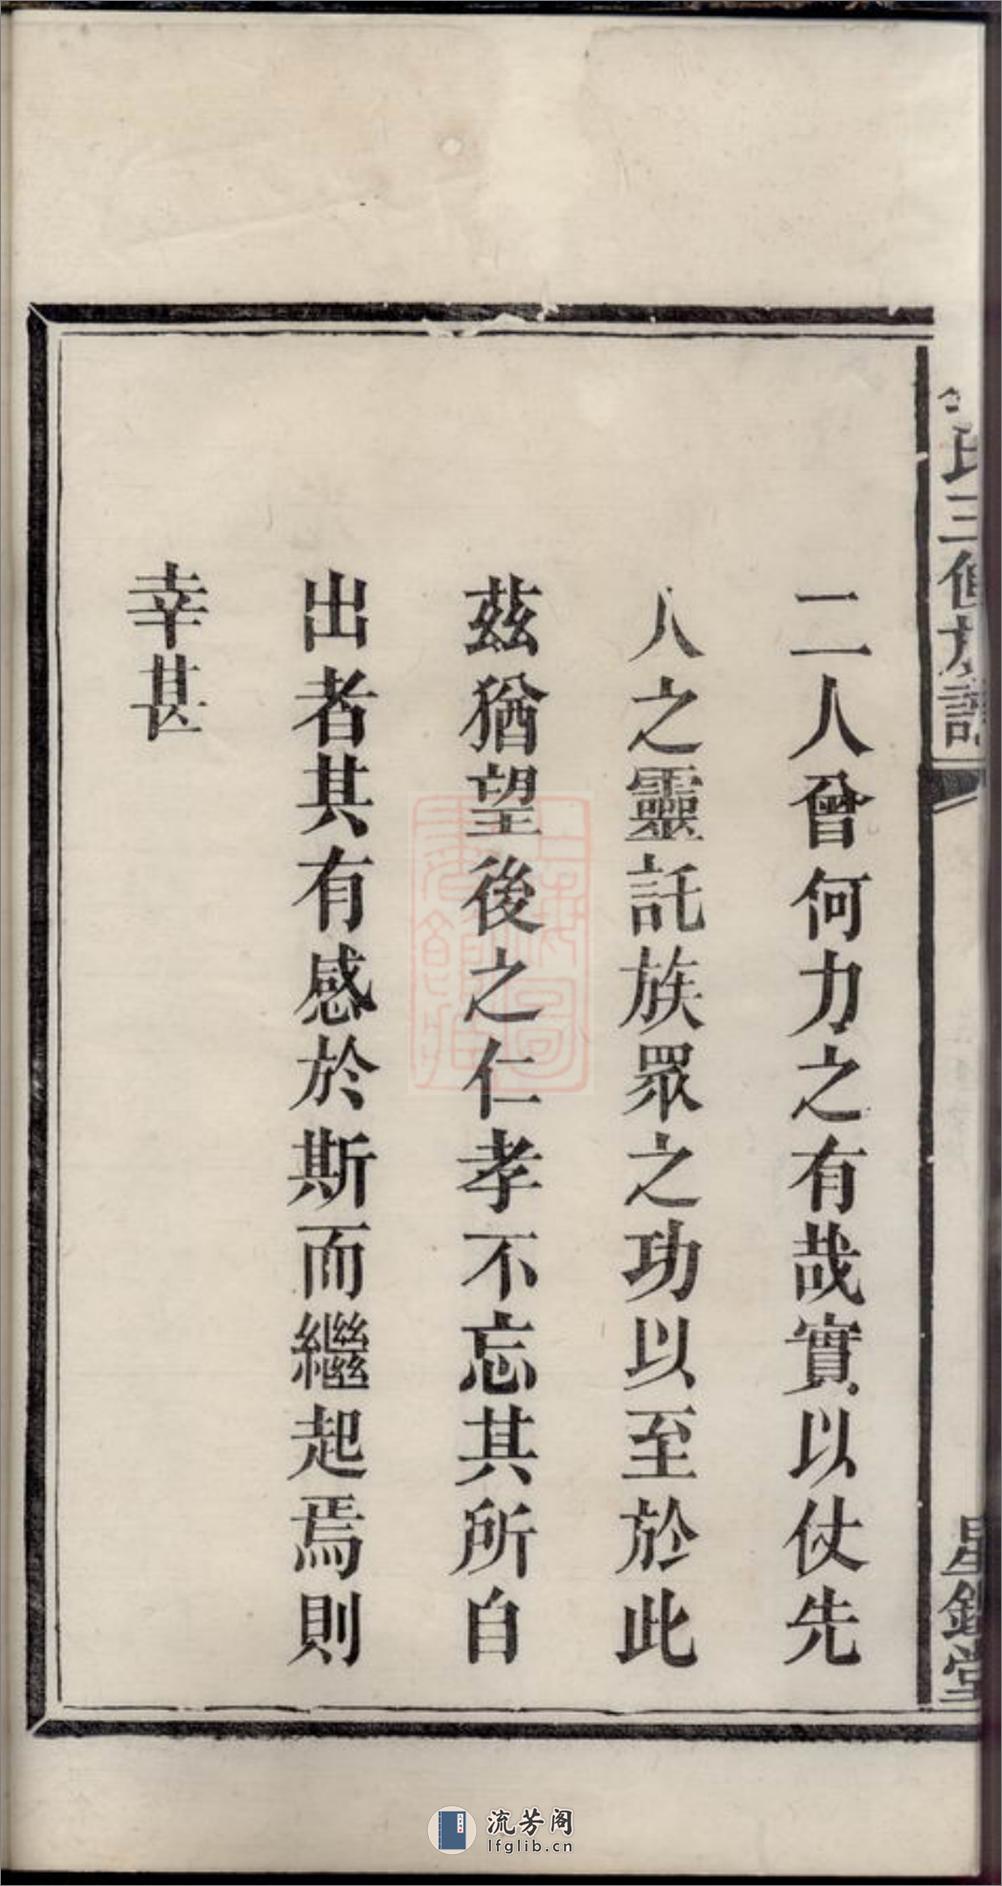 氏三修族譜
星鏡堂
二人曾何力之有哉實以仗先
人之靈託族眾之功以至於此
茲猶望後之仁孝不忘其所自
出者其有感於斯而繼起焉則
幸甚
流芳阁
lfglib.cn